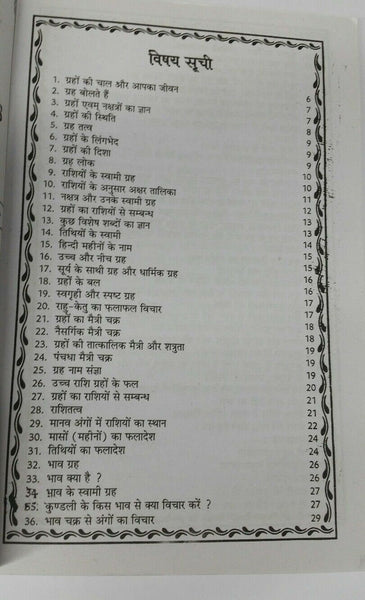 विषय सूची
1. ग्रहों की चाल और आपका जीवन 6
2. ग्रह बोलते हैं 7
3. ग्रहों एवम् नक्षत्रों का ज्ञान 7
4. ग्रहों की स्थिति 7
5. ग्रह तत्व 9
6. ग्रहों के लिंगभेद 9
7. ग्रहों की दिशा 9
8. ग्रह लोक 9
9. राशियों के स्वामी ग्रह 10
10. राशियों के अनुसार अक्षर तालिका 10
11. नक्षत्र और उनके स्वामी ग्रह 11
12. ग्रहों का राशियों से सम्बन्ध 12
13. कुछ विशेष शब्दों का ज्ञान 13
14. तिथियों के स्वामी 13
15. हिन्दी महीनों के नाम 14
16. उच्च और नीच ग्रह 14
17. सूर्य के साथी ग्रह और धार्मिक ग्रह 15
18. ग्रहों के बल 16
19. स्वगृही और स्पष्ट ग्रह 17
20. राहु-केतु का फलाफल विचार 17
21. ग्रहों का मैत्री चक्र 18
22. नैसर्गिक मैत्री चक्र 18
23. ग्रहों की तात्कालिक मैत्री और शत्रुता 18
24. पंचधा मैत्री चक्र 19
25. ग्रह नाम संज्ञा 19
26. उच्च राशि ग्रहों के फल 20
27. ग्रहों का राशियों से सम्बन्ध 21
28. राशितत्व 21
29. मानव अंगों में राशियों का स्थान 22
30. मासों (महीनों) का फलादेश 24
31. तिथियों का फलादेश 24
32. भाव ग्रह 26
33. भाव क्या है ? 27
34. भाव के स्वामी ग्रह 27
35. कुण्डली के किस भाव से क्या विचार करें ? 27
36. भाव चक्र से अंगों का विचार 29